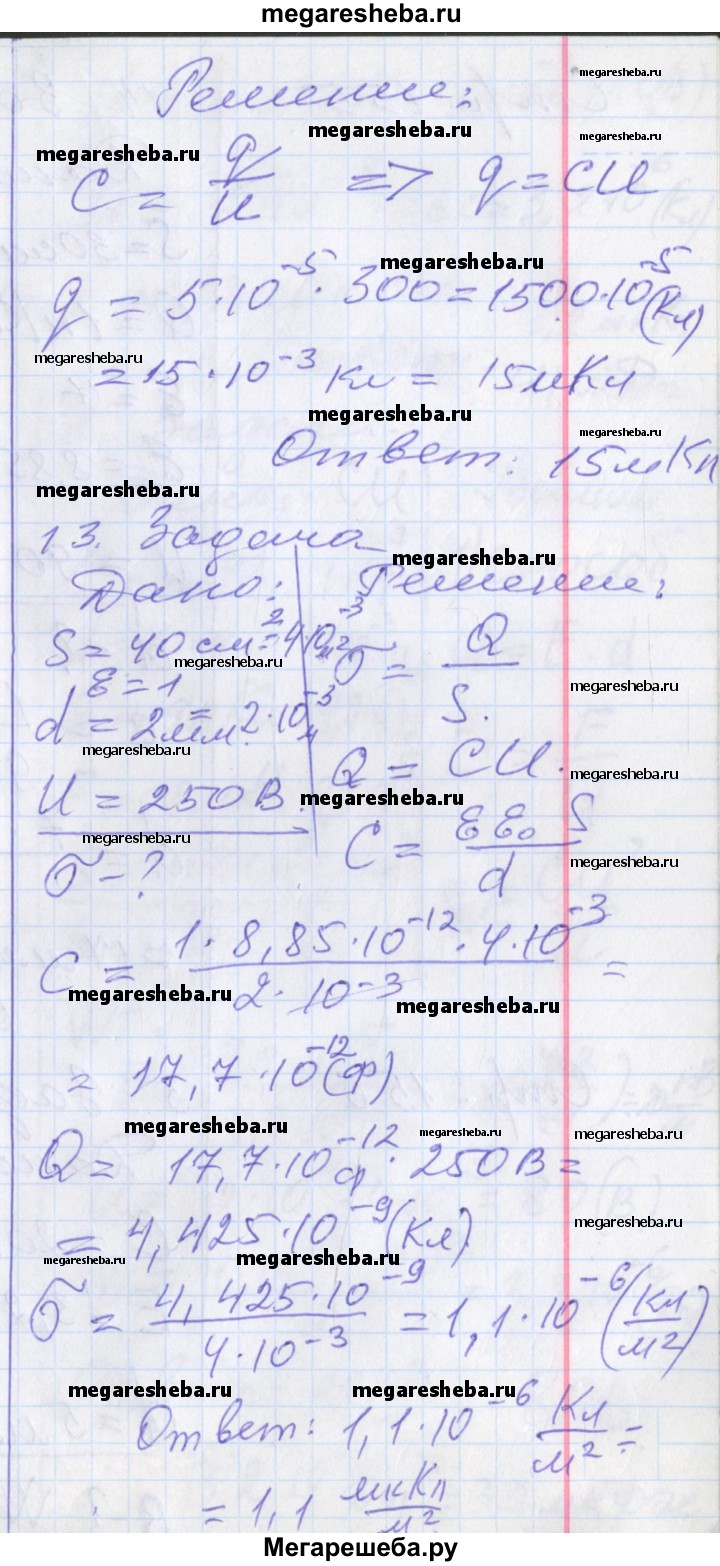 megaresheba.ru
megaresheba.ru
Решение:
megaresheba.ru
megaresheba.ru
C = q/U => q = CU
megaresheba.ru
q = 5·10⁻⁵·300 = 1500·10⁻⁵ (Кл)
megaresheba.ru
= 15·10⁻³ Кл = 15 мКл
megaresheba.ru
Ответ: 15 мКл
megaresheba.ru
13. Задача
megaresheba.ru
Дано: Решение:
S = 40 см² = 4·10⁻³ м²
σ = Q/S.
megaresheba.ru
ε = 1
megaresheba.ru
d = 2 мм = 2·10⁻³ м
megaresheba.ru
Q = CU.
megaresheba.ru
U = 250 В.
megaresheba.ru
megaresheba.ru
C = εε₀ S/d
megaresheba.ru
σ - ?
C = 1·8,85·10⁻¹²·4·10⁻³/2·10⁻³ =
megaresheba.ru
megaresheba.ru
= 17,7·10⁻¹² (Ф)
megaresheba.ru
megaresheba.ru
megaresheba.ru
Q = 17,7·10⁻¹² Ф·250 В =
= 4,425·10⁻⁹ (Кл)
megaresheba.ru
megaresheba.ru
megaresheba.ru
σ = 4,425·10⁻⁹/4·10⁻³ = 1,1·10⁻⁶ (Кл/м²)
megaresheba.ru
megaresheba.ru
Ответ: 1,1·10⁻⁶ Кл/м² =
= 1,1 мкКл/м²
Мегарешеба.ру